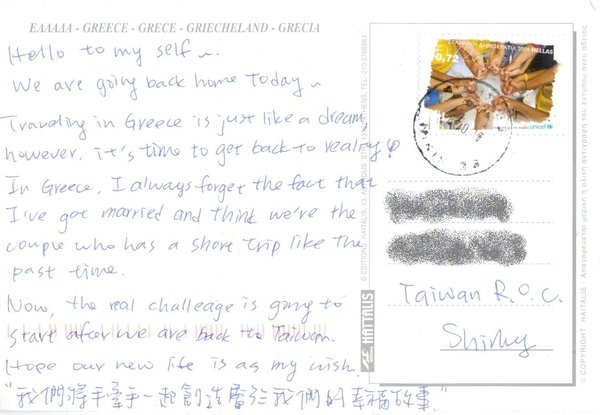 ΕΛΛΑΔΑ - GREECE - GRECE - GRIECHELAND - GRECIA
Hello to my self ~.
We are going back home today ~
Traveling in Greece is just like a dream,
however, it's time to get back to reality!
In Greece, I always forget the fact that
I've got married and think we're the
couple who has a short trip like the
past time.
Now, the real challeage is going to
start after we are back to Taiwan.
Hope our new life is as my wish.
"我們將手牽手一起創造屬於我們的幸福故事"
© EDITIONS HAITALIS
HAITALIS
ΕΛΛΗΝΙΚΗ ΔΗΜΟΚΡΑΤΙΑ 2009 HELLAS
0,72
unicef
Taiwan R.O.C.
Shirley
© COPYRIGHT HAITALIS - Απαγορεύεται μερική ή ολική αντιγραφή του εντύπου άνευ αδείας